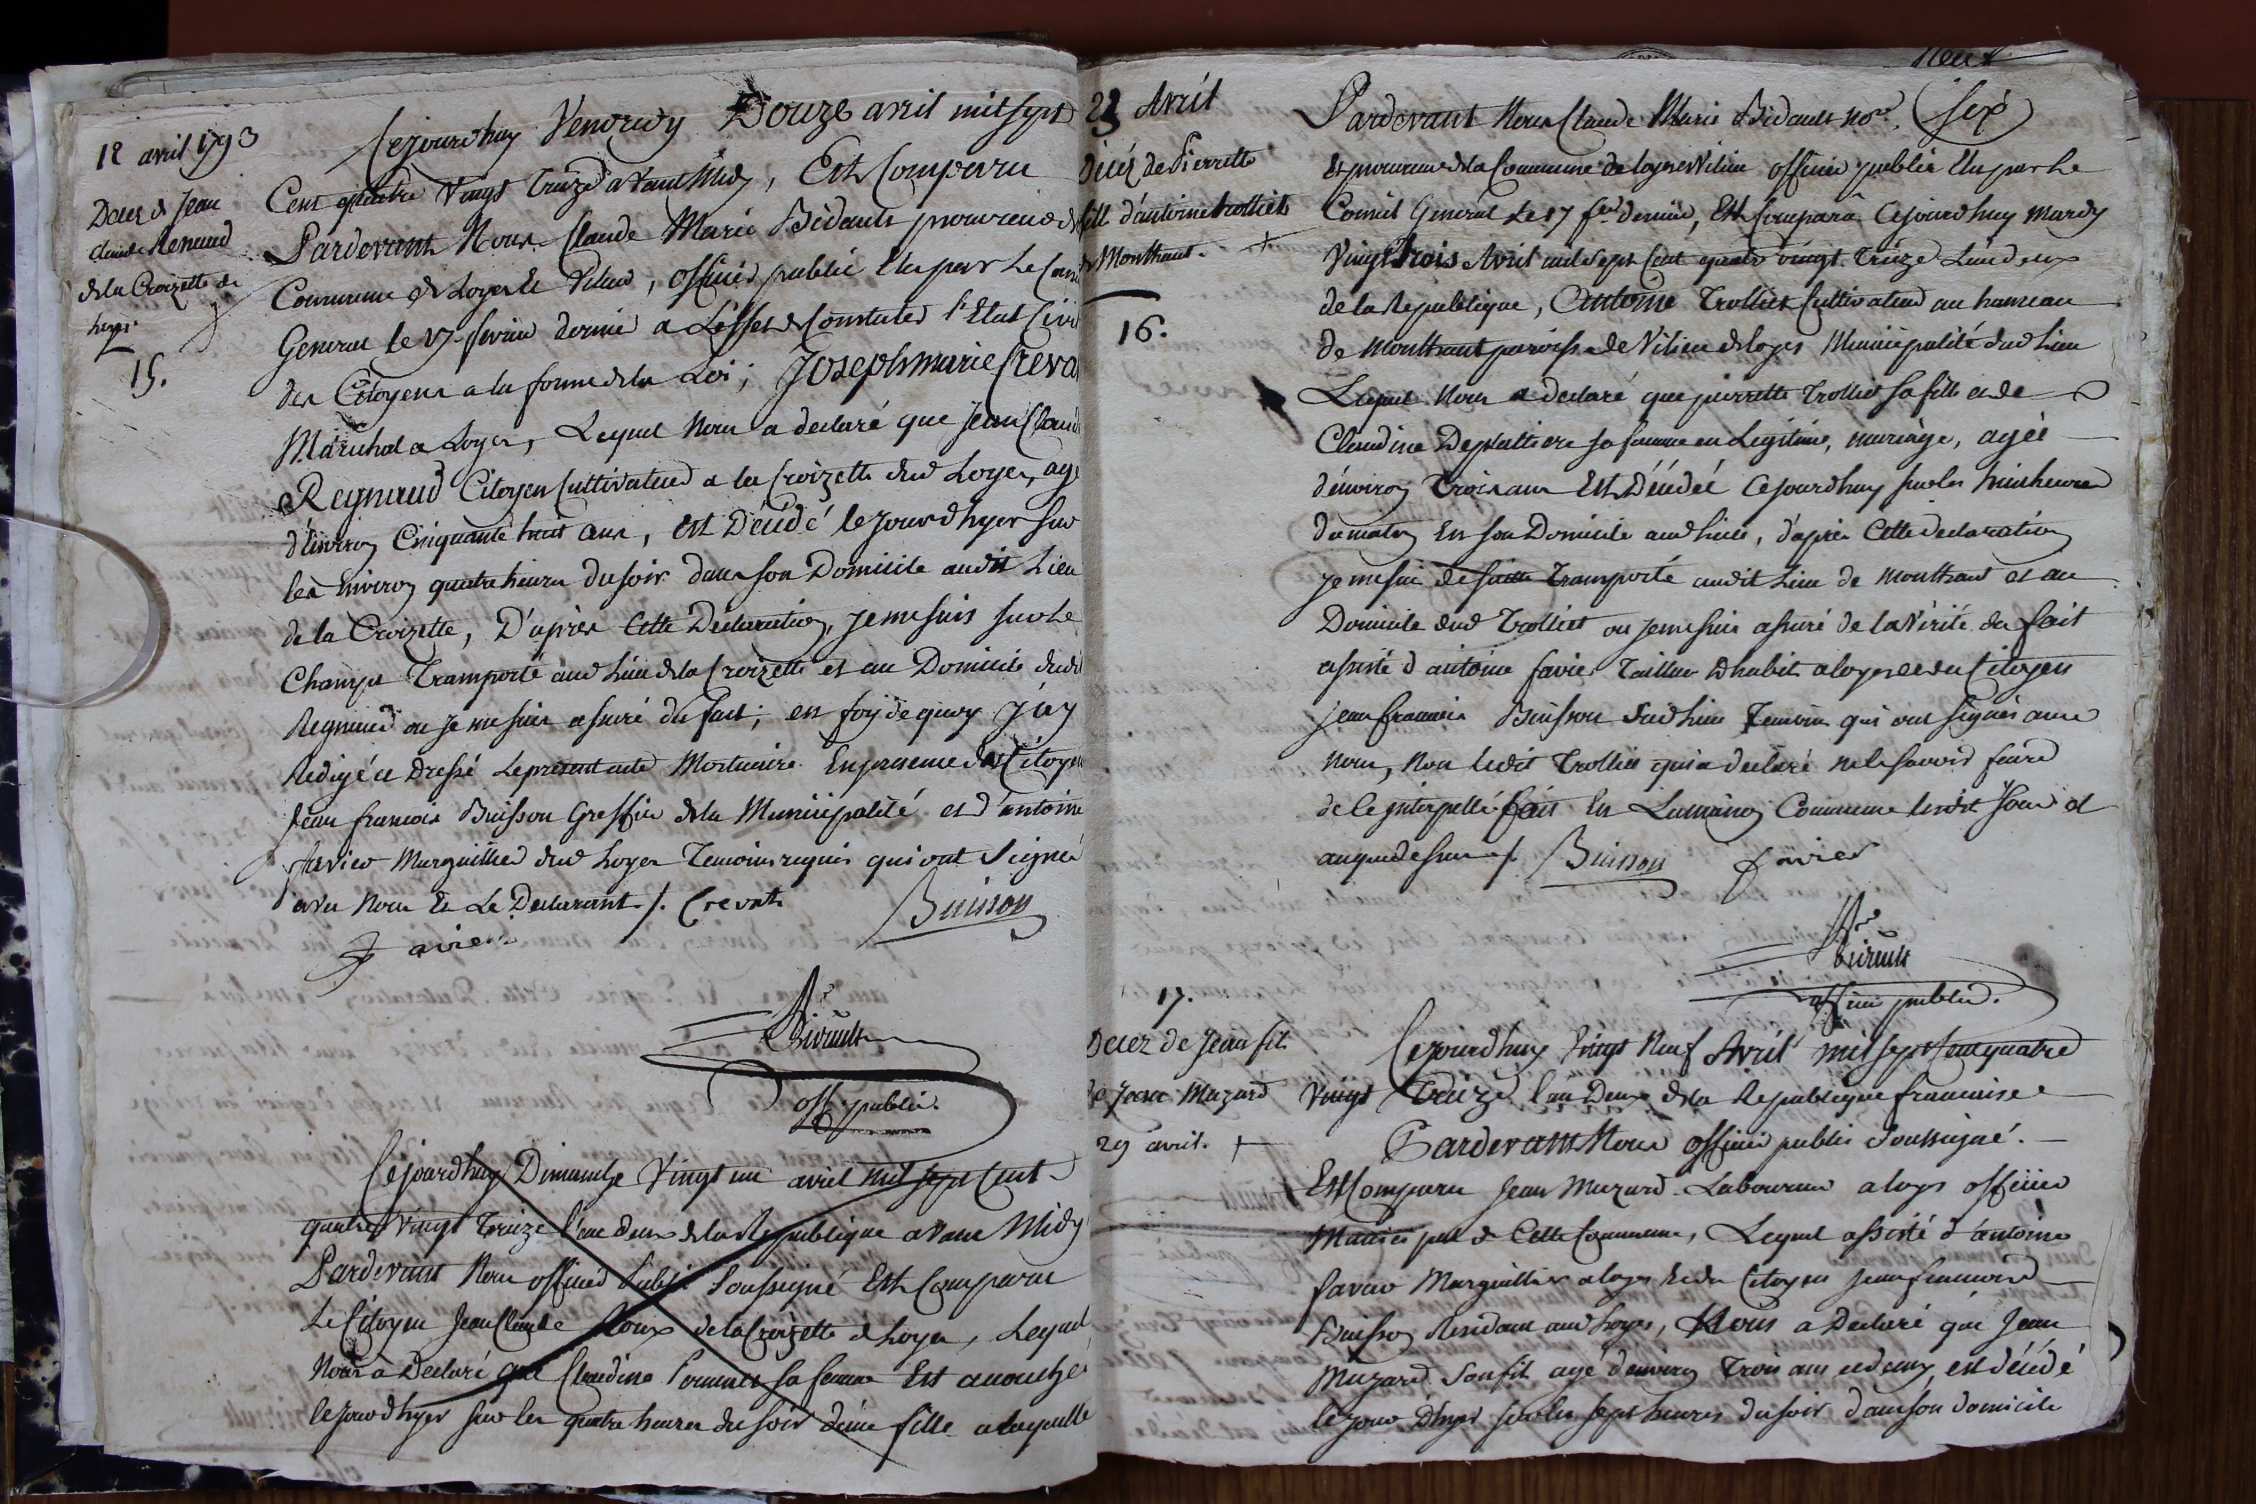 12 avril 1793
Deces de Jean
Claude Renaud
de la Croizette de
Loyes
15.
Cejourdhuy Vendredy Douze avril mil sept
Cent quatre Vingt Treize avant Midy, Est Comparu
Pardevant Nous Claude Marie Bidault procureur de
Commune de Loyes et Vilieu, officier public Elu par Le Conseil
General le 17 fevrier dernier a L'effet de Constater l'Etat Civil
des Citoyens a la forme de la Loi; Joseph marie Creva
Maréchal a Loyes, Lequel Nous a declaré que Jean Claude
Regnaud Citoyen Cultivateur a la Croizette dud Loyes, agé
d'environ Cinquante huit ans, est Décédé le jour d'hyer sur
les Environ quatre heures du soir dans son Domicile audit Lieu
de la Croizette, D'après Cette Declaration, je me suis sur Le
Champ Transporté aud Lieu de la Croizette et au Domicile dudit
Regnaud ou Je me suis assuré du fait; en foy de quoy J'ay
Redigé et Dressé Le present acte Mortuaire En presence des Citoyens
Jean francois Buisson Greffier de la Municipalité et d'antoine
favier Marguillier dud Loyes Temoins requis qui ont Signé
avec Nous Et Le Declarant ./. Crevat
Buisson
favier
Bidault
off. public.
Cejourdhuy Dimanche Vingt un avril mil sept Cent
quatre Vingt Treize l'an deux de la Republique avant Midy
Pardevant Nous officier Public Soussigné Est Comparu
Le Citoyen Jean Claude Roux de la Croizette de Loyes, Lequel
Nous a Declaré que Claudine sa femme Est accouché
le jour d'hyer sur les quatre heures du soir d'une fille a laquelle
Neuf
23 Avril
Décès de Pierrette
fille d'antoine trolliet
de Monthaut.
16.
Pardevant Nous Claude Marie Bidault no.re
et procureur de la Commune de Loyes et Vilieu officier public Elu par Le
Conseil General Le 17 f.er dernier, Est Comparu Cejourdhuy Mardy
Vingt Trois Avril mil Sept Cent quatre vingt Treize L'an deux
de la Republique, Antoine Trolliet Cultivateur au hameau
de Monthaut paroisse de Vilieu de Loyes Municipalité dud Lieu
Lequel Nous a declaré que pierrette Trolliet sa fille et de
Claudine Deplattiere sa femme en Legitime mariage, agée
d'environ Trois ans Est Décédée Cejourdhuy sur les huit heures
du matin En son Domicile aud Lieu, d'après Cette declaration
je me suis de suitte Transporté audit Lieu de Monthaut et au
Domicile dud Trolliet ou je me suis assuré de la Vérité du fait
assisté d'antoine favier Tailleur D'habit a Loyes et du Citoyen
Jean francois Buisson dud Lieu Temoins qui ont signés avec
Nous, Non Ledit Trolliet qui a declaré ne le Savoir faire
de ce interpellé fait En La maison Commune Lesdit Jour et
an que dessus ./. Buisson favier
Bidault
officier public.
17.
Decez de Jean fils
de Jean Mazard
29 avril.
Cejourdhuy Vingt Neuf Avril mil sept Cent quatre
Vingt Treize l'an Deux de la Republique francaise
Pardevant Nous officier public Soussigné.
Est Comparu Jean Mazard Laboureur a Loyes officier
Municipal de Cette Commune, Lequel assisté d'antoine
favier Marguillier a Loyes Et du Citoyen Jean francois
Buisson Residant aud Loyes, Nous a Declaré que Jean
Mazard Son fils agé d'environ Trois ans et demy est décédé
le jour d'hyer sur les sept heures du soir dans son domicile